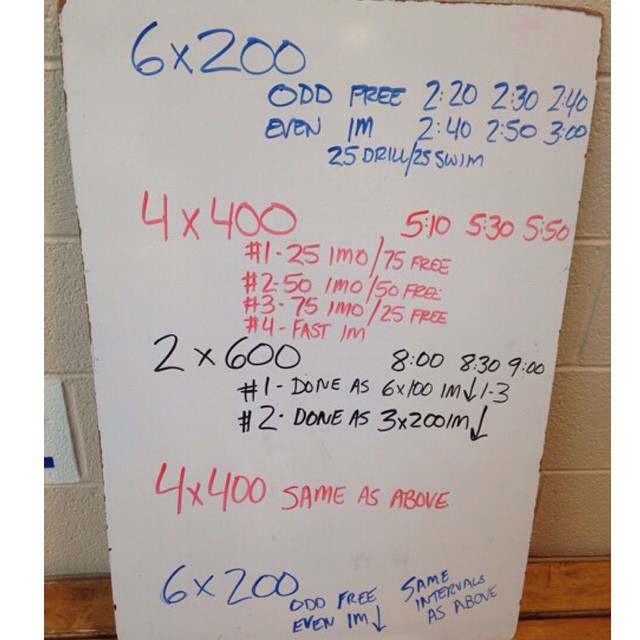 6x200
ODD FREE 2:20 2:30 2:40
EVEN IM 2:40 2:50 3:00
25 DRILL/25 SWIM
4x400 5:10 5:30 5:50
#1-25 IMO/75 FREE
#2-50 IMO/50 FREE
#3-75 IMO/25 FREE
#4-FAST IM
2x600 8:00 8:30 9:00
#1- DONE AS 6x100 IM↓1-3
#2- DONE AS 3x200IM↓
4x400 SAME AS ABOVE
6x200
ODD FREE
EVEN IM↓
SAME
INTERVALS
AS ABOVE